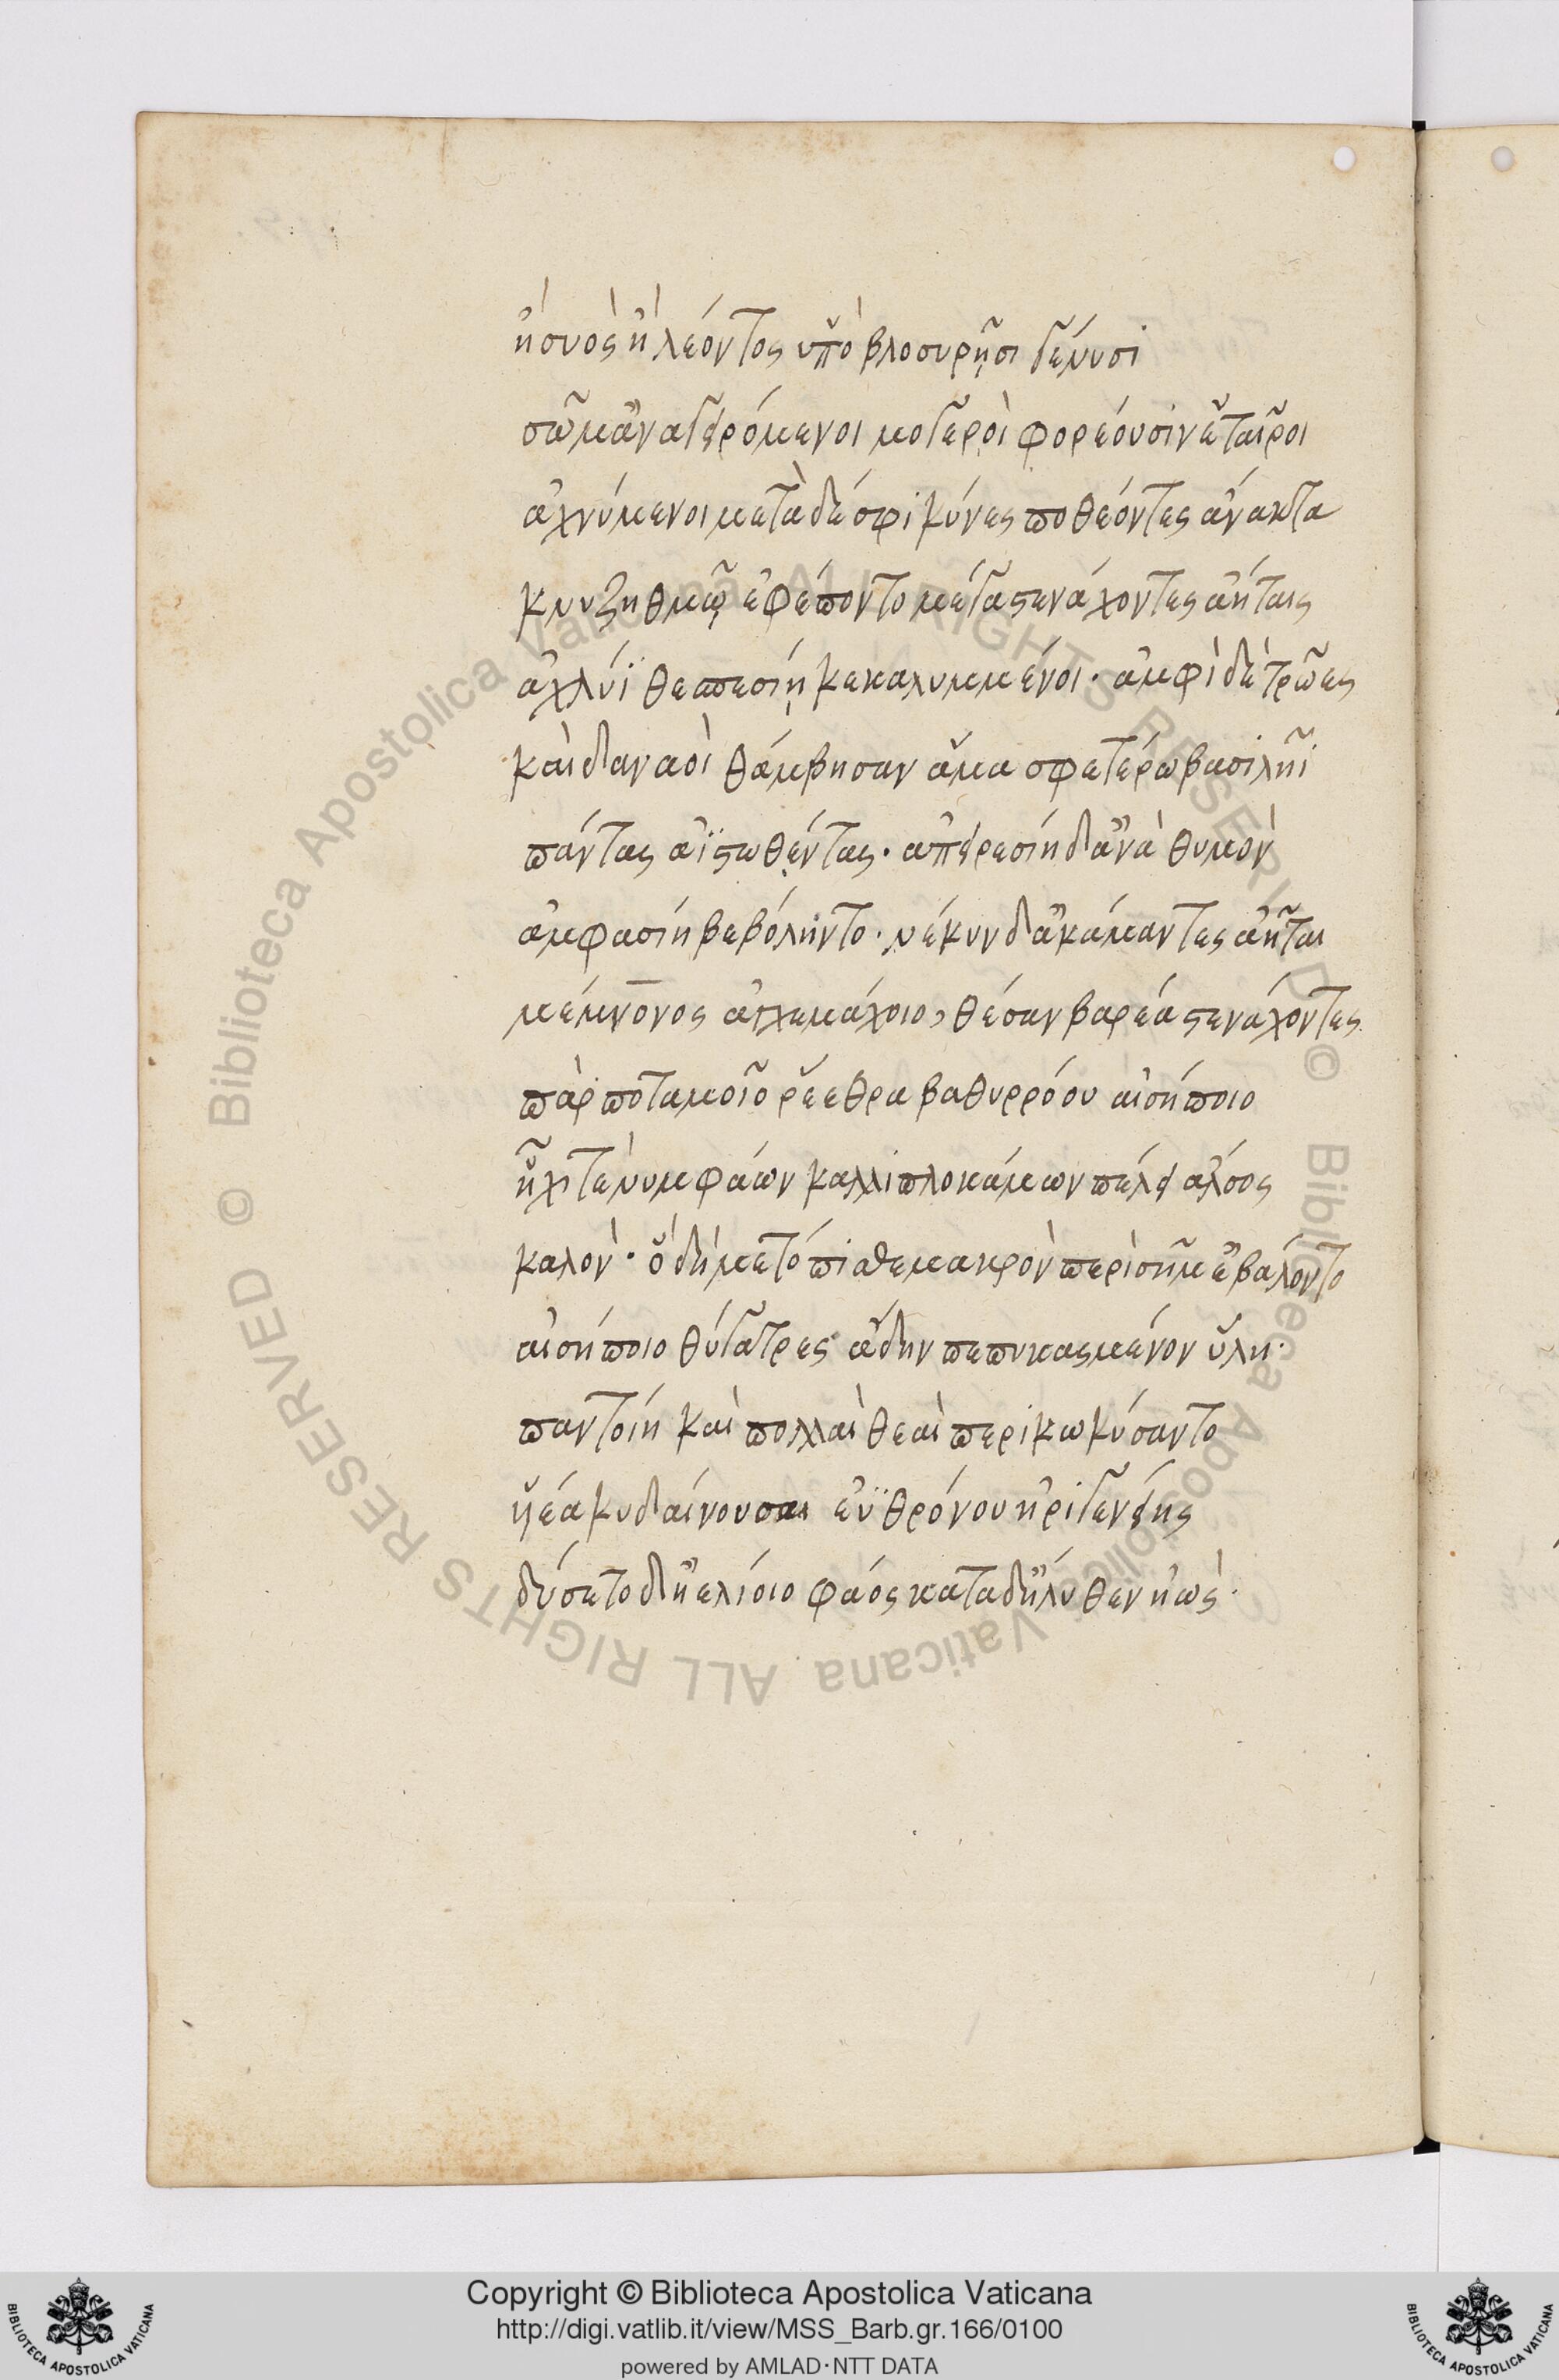 ἢ συὸς ἢ λέοντος ὑπὸ βλοσυρῇσι γένυσι
σῶμ' ἀναειρόμενοι μογεροὶ φορέουσιν ἑταῖροι
ἀχνύμενοι μετὰ δέ σφι κύνες ποθέοντες ἄνακτα
κνυζηθμῷ ἐφέποντο μέγα στενάχοντες ἀήταις
ἀχλύϊ θεσπεσίῃ κεκαλυμμένοι· ἀμφὶ δὲ τρῶες
καὶ δαναοὶ θάμβησαν ἅμα σφετέρω βασιλῆϊ
πάντας ἀϊστωθέντας· ἀπειρεσίη δ' ἀνὰ θυμὸν
ἀμφασίη βεβόληντο· νέκυν δ' ἀκάμαντες ἀῆται
μέμνονος ἀγχεμάχοιο, θέσαν βαρέα στενάχοντες
πὰρ ποταμοῖο ῥέεθρα βαθυρρόου αἰσήποιο
ἧχί τε νυμφάων καλλιπλοκάμων πέλει ἄλσος
καλὸν· ὃ δὴ μετόπισθε μακρὸν περὶ σῆμ' ἐβάλοντο
αἰσήποιο θύγατρες ἄδην πεπυκασμένον ὕλη·
παντοίη καὶ πολλαὶ θεαὶ περικωκύσαντο
υἱέα κυδαίνουσαι ἐϋθρόνου ἠριγενείης
δύσετο δ' ἠελίοιο φάος κατὰ δ' ἤλυθεν ἠὼς·
Copyright © Biblioteca Apostolica Vaticana
http://digi.vatlib.it/view/MSS_Barb.gr.166/0100
powered by AMLAD·NTT DATA
© Biblioteca Apostolica Vaticana ALL RIGHTS RESERVED
© Biblioteca Apostolica Vaticana ALL RIGHTS RESERVED
BIBLIOTECA APOSTOLICA VATICANA
BIBLIOTECA APOSTOLICA VATICANA